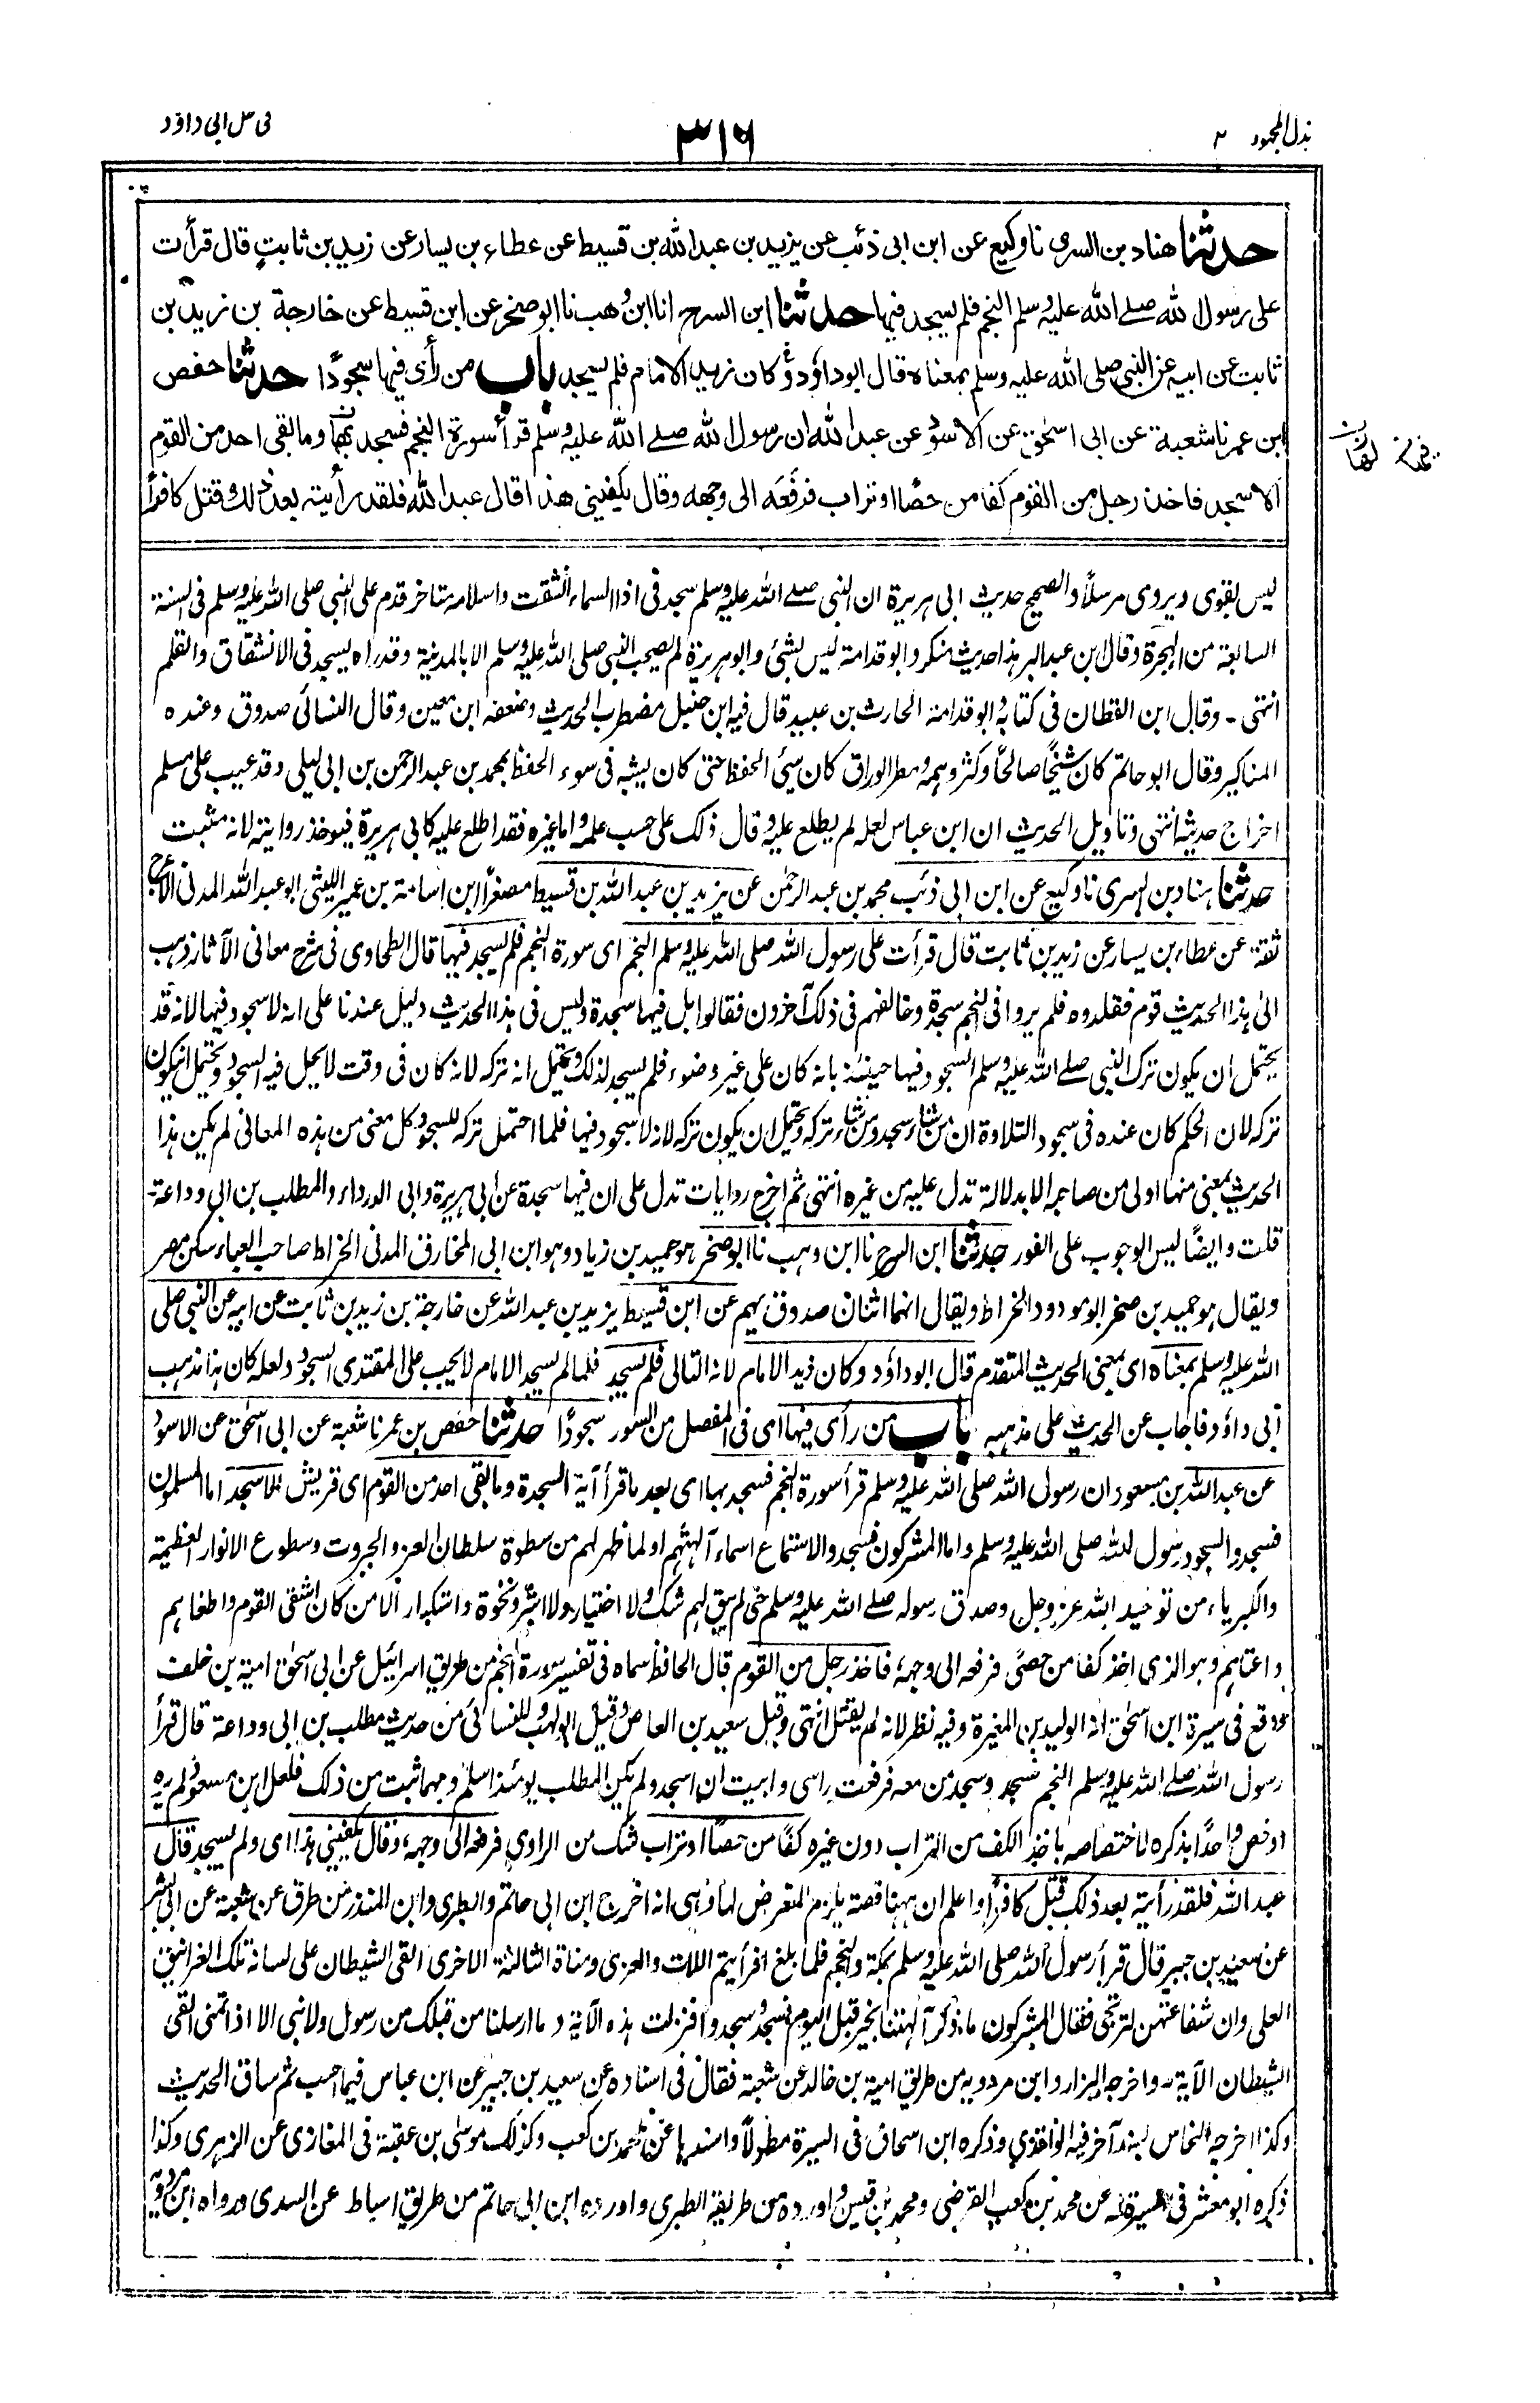 بذل المجهود ٢
٣١٦
فی حل ابی داؤد
حدثنا هناد بن السری نا وکیع عن ابن ابی ذئب عن یزید بن عبد الله بن قسیط عن عطاء بن یسار عن زید بن ثابت قال قرأت
علی رسول الله صلے الله علیه وسلم النجم فلم یسجد فیها حدثنا ابن السرح انا ابن وهب نا ابو صخر عن ابن قسیط عن خارجة بن زید بن
ثابت عن ابیه عن النبی صلی الله علیه وسلم بمعناه قال ابو داؤد وکان زید الامام فلم یسجد باب من رأی فیها سجودًا حدثنا حفص
ابن عمر نا شعبة عن ابی اسحٰق عن الاسود عن عبد الله ان رسول الله صلے الله علیه وسلم قرأ سورة النجم فسجد بها وما بقی احد من القوم
الا سجد فاخذ رجل من القوم کفا من حصًا او تراب فرفعه الی وجهه وقال یکفینی هذا قال عبد الله فلقد رأیته بعد ذلك قتل کافرًا
لیس بقوی ویروی مرسلًا والصحیح حدیث ابی ہریرة ان النبی صلے الله علیه وسلم سجد فی اذا السماء انشقت واسلامه متاخر قدم علی النبی صلی الله علیه وسلم فی السنة
السابعة من الہجرة وقال ابن عبد البر ہذا حدیث منکر وابو قدامة لیس بشئ وابو ہریرة لم یصحب النبی صلی الله علیه وسلم الا بالمدینة وقد راہ یسجد فی الانشقاق والقلم
انتہی ـ وقال ابن القطان فی کتابه وابو قدامة الحارث بن عبید قال فیه ابن حنبل مضطرب الحدیث وضعفه ابن معین وقال النسائی صدوق وعنده
المناکیر وقال ابو حاتم کان شیخًا صالحًا وکثر وہمه ومطر الوراق کان سیئ الحفظ حتی کان یشبه فی سوء الحفظ بمحمد بن عبد الرحمن بن ابی لیلی وقد عیب علی مسلم
اخراج حدیثه انتہی وتاویل الحدیث ان ابن عباس لعله لم یطلع علیه وقال ذلک علی حسب علمه واما غیره فقد اطلع علیه کابی ہریرة فیوخذ روایته لانه مثبت
حدثنا ہناد بن السری نا وکیع عن ابن ابی ذئب محمد بن عبد الرحمٰن عن یزید بن عبد الله بن قسیط مصغرًا ابن اسامة بن عمیر اللیثی ابو عبد الله المدنی الاعرج
ثقة عن عطاء بن یسار عن زید بن ثابت قال قرأت علی رسول الله صلی الله علیه وسلم النجم ای سورة النجم فلم یسجد فیہا قال الطحاوی فی شرح معانی الآثار ذہب
الیٰ ہذا الحدیث قوم فقلدوه فلم یروا فی النجم سجدة وخالفهم فی ذلک آخرون فقالوا بل فیہا سجدة ولیس فی ہذا الحدیث دلیل عندنا علی انه لا سجود فیہا لانه قد
یحتمل ان یکون ترک النبی صلے الله علیه وسلم السجود فیہا حینئذ بانه کان علی غیر وضوء فلم یسجد لذلک ویحتمل انه ترکه لانه کان فی وقت لا یحل فیه السجود ویحتمل ان یکون
ترکه لان الحکم کان عنده فی سجود التلاوة ان من شاء سجد ومن شاء ترکه ویحتمل ان یکون ترکه لانه لا سجود فیہا فلما احتمل ترکه للسجود کل معنی من ہذه المعانی لم یکن ہذا
الحدیث بمعنی منہا اولی من صاحبه الا بدلالة تدل علیه من غیره انتہی ثم اخرج روایات تدل علی ان فیہا سجدة عن ابی ہریرة وابی الدرداء والمطلب بن ابی وداعة ـ
قلت وایضًا لیس الوجوب علی الفور حدثنا ابن السرح نا ابن وہب نا ابو صخر ہو حمید بن زیاد وہو ابن ابی المخارق المدنی الخراط صاحب العباء سکن مصر
ویقال ہو حمید بن صخر ابو مودود الخراط ویقال انہما اثنان صدوق یہم عن ابن قسیط یزید بن عبد الله عن خارجة بن زید بن ثابت عن ابیه عن النبی صلی
الله علیه وسلم بمعناه ای بمعنی الحدیث المتقدم قال ابو داؤد وکان زید الامام لانه التالی فلم یسجد فلما لم یسجد الامام لا یجب علی المقتدی السجود ولعله کان ہذا مذہب
ابی داؤد فاجاب عن الحدیث علی مذہبه باب من رأی فیہا ای فی المفصل من السور سجودًا حدثنا حفص بن عمر نا شعبة عن ابی اسحٰق عن الاسود
عن عبد الله بن مسعود ان رسول الله صلی الله علیه وسلم قرأ سورة النجم فسجد بہا ای بعد ما قرأ آیة السجدة وما بقی احد من القوم ای قریش الا سجد اما المسلمون
فسجدوا لسجود رسول الله صلی الله علیه وسلم واما المشرکون فسجدوا لاستماع اسماء آلہتہم او لما ظهر لہم من سطوة سلطان العز والجبروت وسطوع الانوار العظیمة
والکبریاء من توحید الله عز وجل وصدق رسوله صلے الله علیه وسلم حتی لم یبق لہم شک ولا اختیار ولا اشر ونخوة واستکبار الا من کان اشقی القوم واطغاہم
واعتاہم وہو الذی اخذ کفا من حصًی فرفعه الی وجہه فاخذ رجل من القوم قال الحافظ سماه فی تفسیر سورة النجم من طریق اسرائیل عن ابی اسحٰق امیة بن خلف
ووقع فی سیرة ابن اسحٰق انه الولید بن المغیرة وفیه نظر لانه لم یقتل انتہی وقیل سعید بن العاص وقیل ابو لہب وللنسائی من حدیث مطلب بن ابی وداعة قال قرأ
رسول الله صلے الله علیه وسلم النجم فسجد وسجد من معه فرفعت راسی وابیت ان اسجد ولم یکن المطلب یومئذ اسلم ومہما ثبت من ذلک فلعل ابن مسعود لم یره
او خص واحدًا بذکره لاختصاصه باخذ الکف من التراب دون غیره کفًا من حصًا او تراب شک من الراوی فرفعه الی وجہه وقال یکفینی ہذا ای ولم یسجد قال
عبد الله فلقد رأیته بعد ذلک قتل کافرًا واعلم ان ہہنا قصة یلزم التعرض لہا وہی انه اخرج ابن ابی حاتم والطبری وابن المنذر من طرق عن شعبة عن ابی بشر
عن سعید بن جبیر قال قرأ رسول الله صلی الله علیه وسلم بمکة والنجم فلما بلغ افرأیتم اللات والعزی ومناة الثالثة الاخری القی الشیطان علی لسانه تلک الغرانیق
العلی وان شفاعتهن لترتجی فقال المشرکون ما ذکر آلہتنا بخیر قبل الیوم فسجد وسجدوا فنزلت ہذه الآیة وما ارسلنا من قبلک من رسول ولا نبی الا اذا تمنی القی
الشیطان الآیة ـ واخرجه البزار وابن مردویه من طریق امیة بن خالد عن شعبة فقال فی اسناده عن سعید بن جبیر عن ابن عباس فیما احسب ثم ساق الحدیث
وکذا اخرجه النحاس بسند آخر فیه الواقدی وذکره ابن اسحاق فی السیرة مطولًا واسندہا عن محمد بن کعب وکذلک موسٰی بن عقبة فی المغازی عن الزہری وکذا
ذکره ابو معشر فی السیرة له عن محمد بن کعب القرظی ومحمد بن قیس واورده من طریقه الطبری واورده ابن ابی حاتم من طریق اسباط عن السدی ورواه ابن مردویه